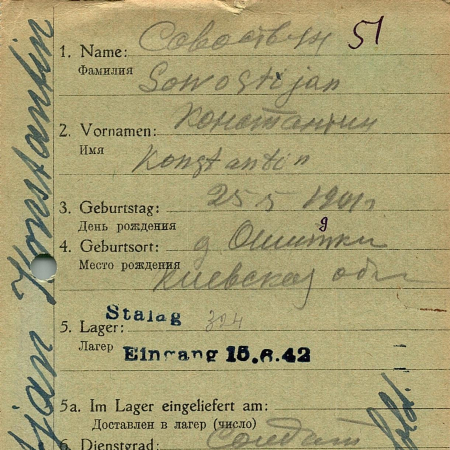 51
1. Name: Совостьян
Фамилия
Sowostijan
2. Vornamen: Константин
Имя
Konstantin
3. Geburtstag: 25 5 1901 г
День рождения
4. Geburtsort: д
Место рождения Киевская обл
5. Lager: Stalag
Лагерь Eingang 15.6.42
5a. Im Lager eingeliefert am:
Доставлен в лагерь (число)
6. Dienstgrad: Солдат
Konstantin
Sold.